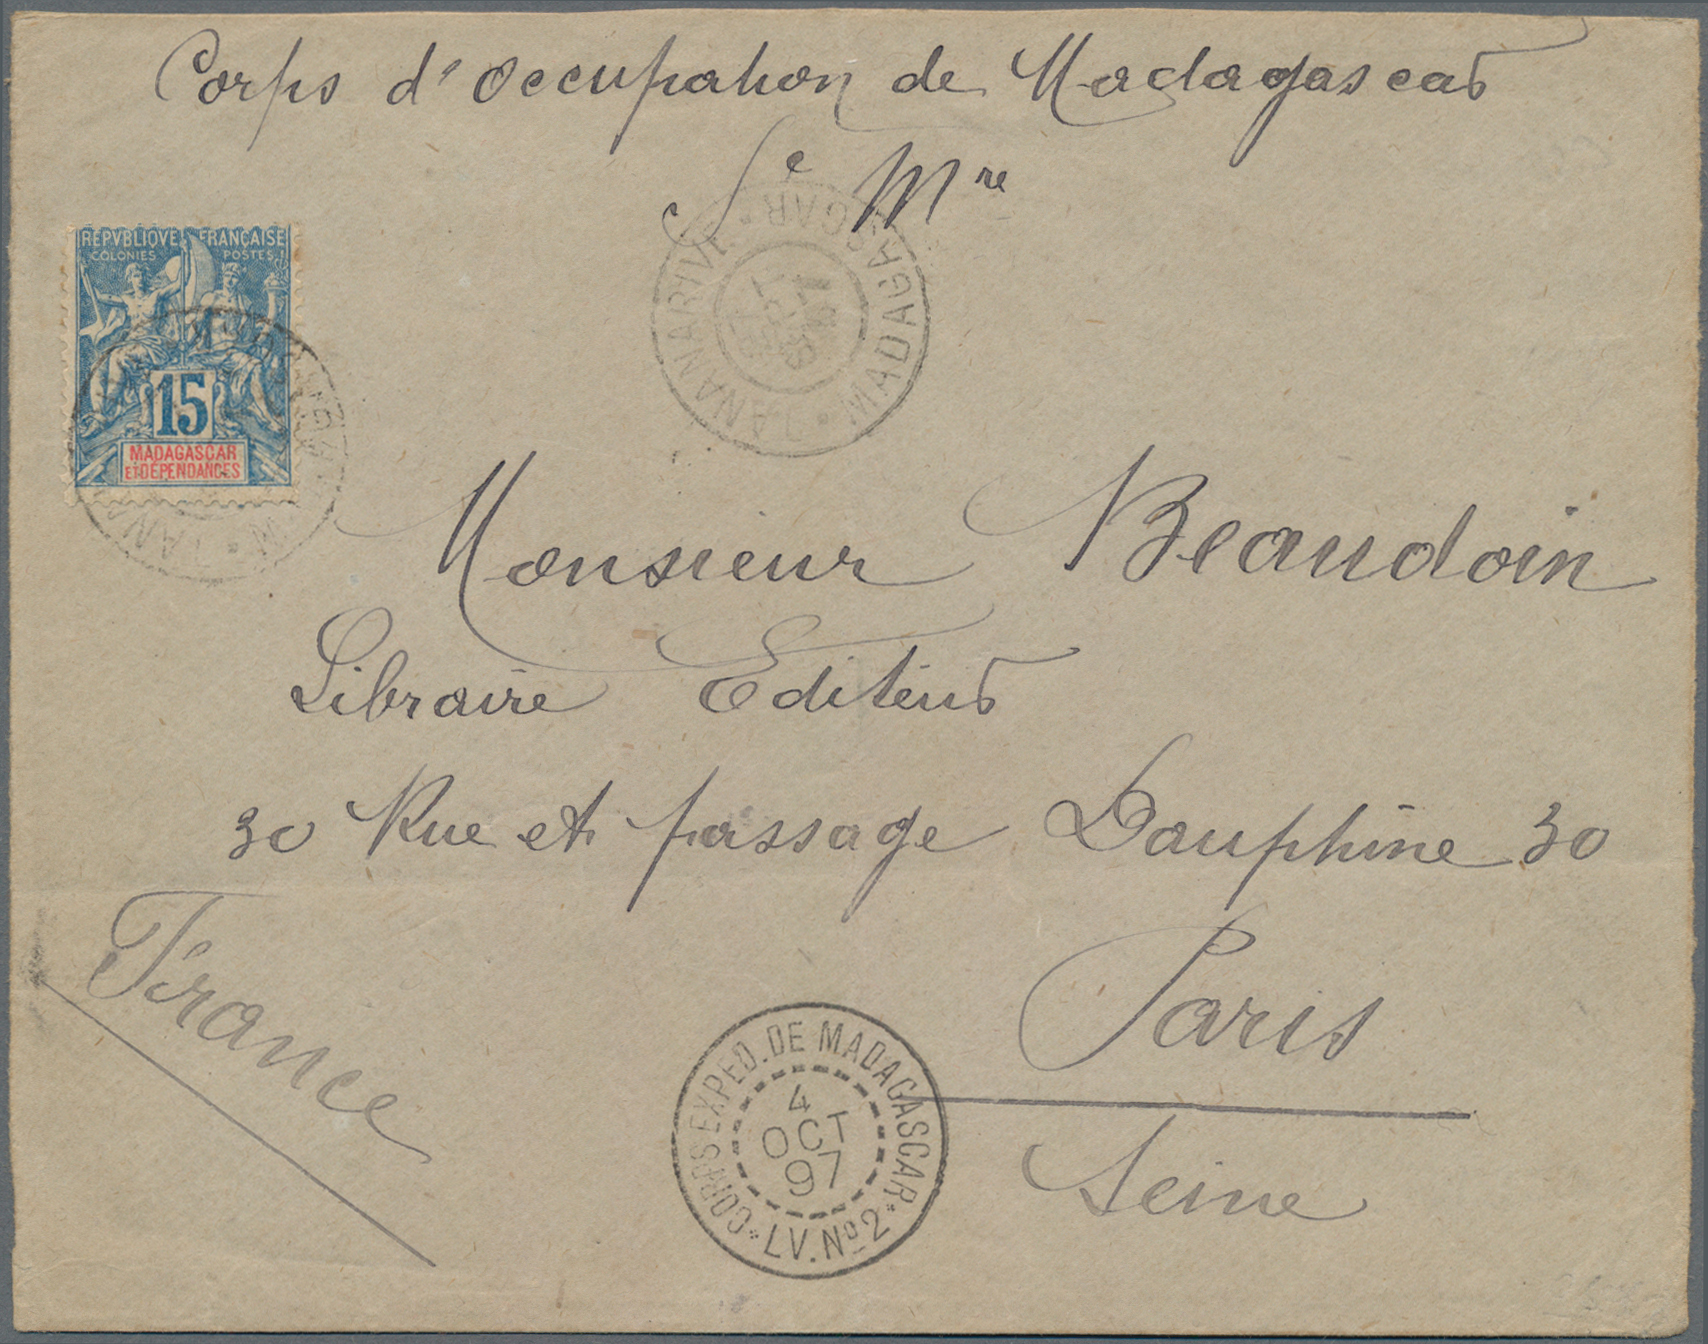 Corps d'occupation de Madagascar
Sᵉ Mʳᵉ
TANANARIVE * MADAGASCAR *
SEPT
97
REPVBLIQVE FRANÇAISE
COLONIES POSTES
15
MADAGASCAR
ET DÉPENDANCES
TANA
Monsieur Beaudoin
Libraire Editeur
30 Rue et passage Dauphine 30
Paris
Seine
France
CORPS EXPED. DE MADAGASCAR
4
OCT
97
* LV. Nº 2 *